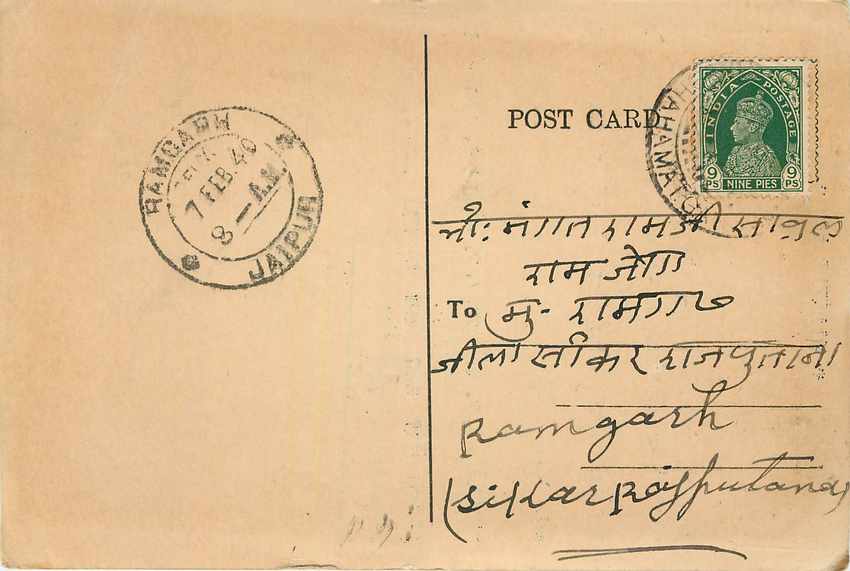 RAMGARH
7 FEB. 40
8 - A.M.
JAIPUR
POST CARD
INDIA POSTAGE
9 PS NINE PIES 9 PS
श्री: मंगत रामजी साबुल
राम जोग
To मु- रामगढ
जीला सीकर राजपुताना
Ramgarh
(Sikar Rajputana)